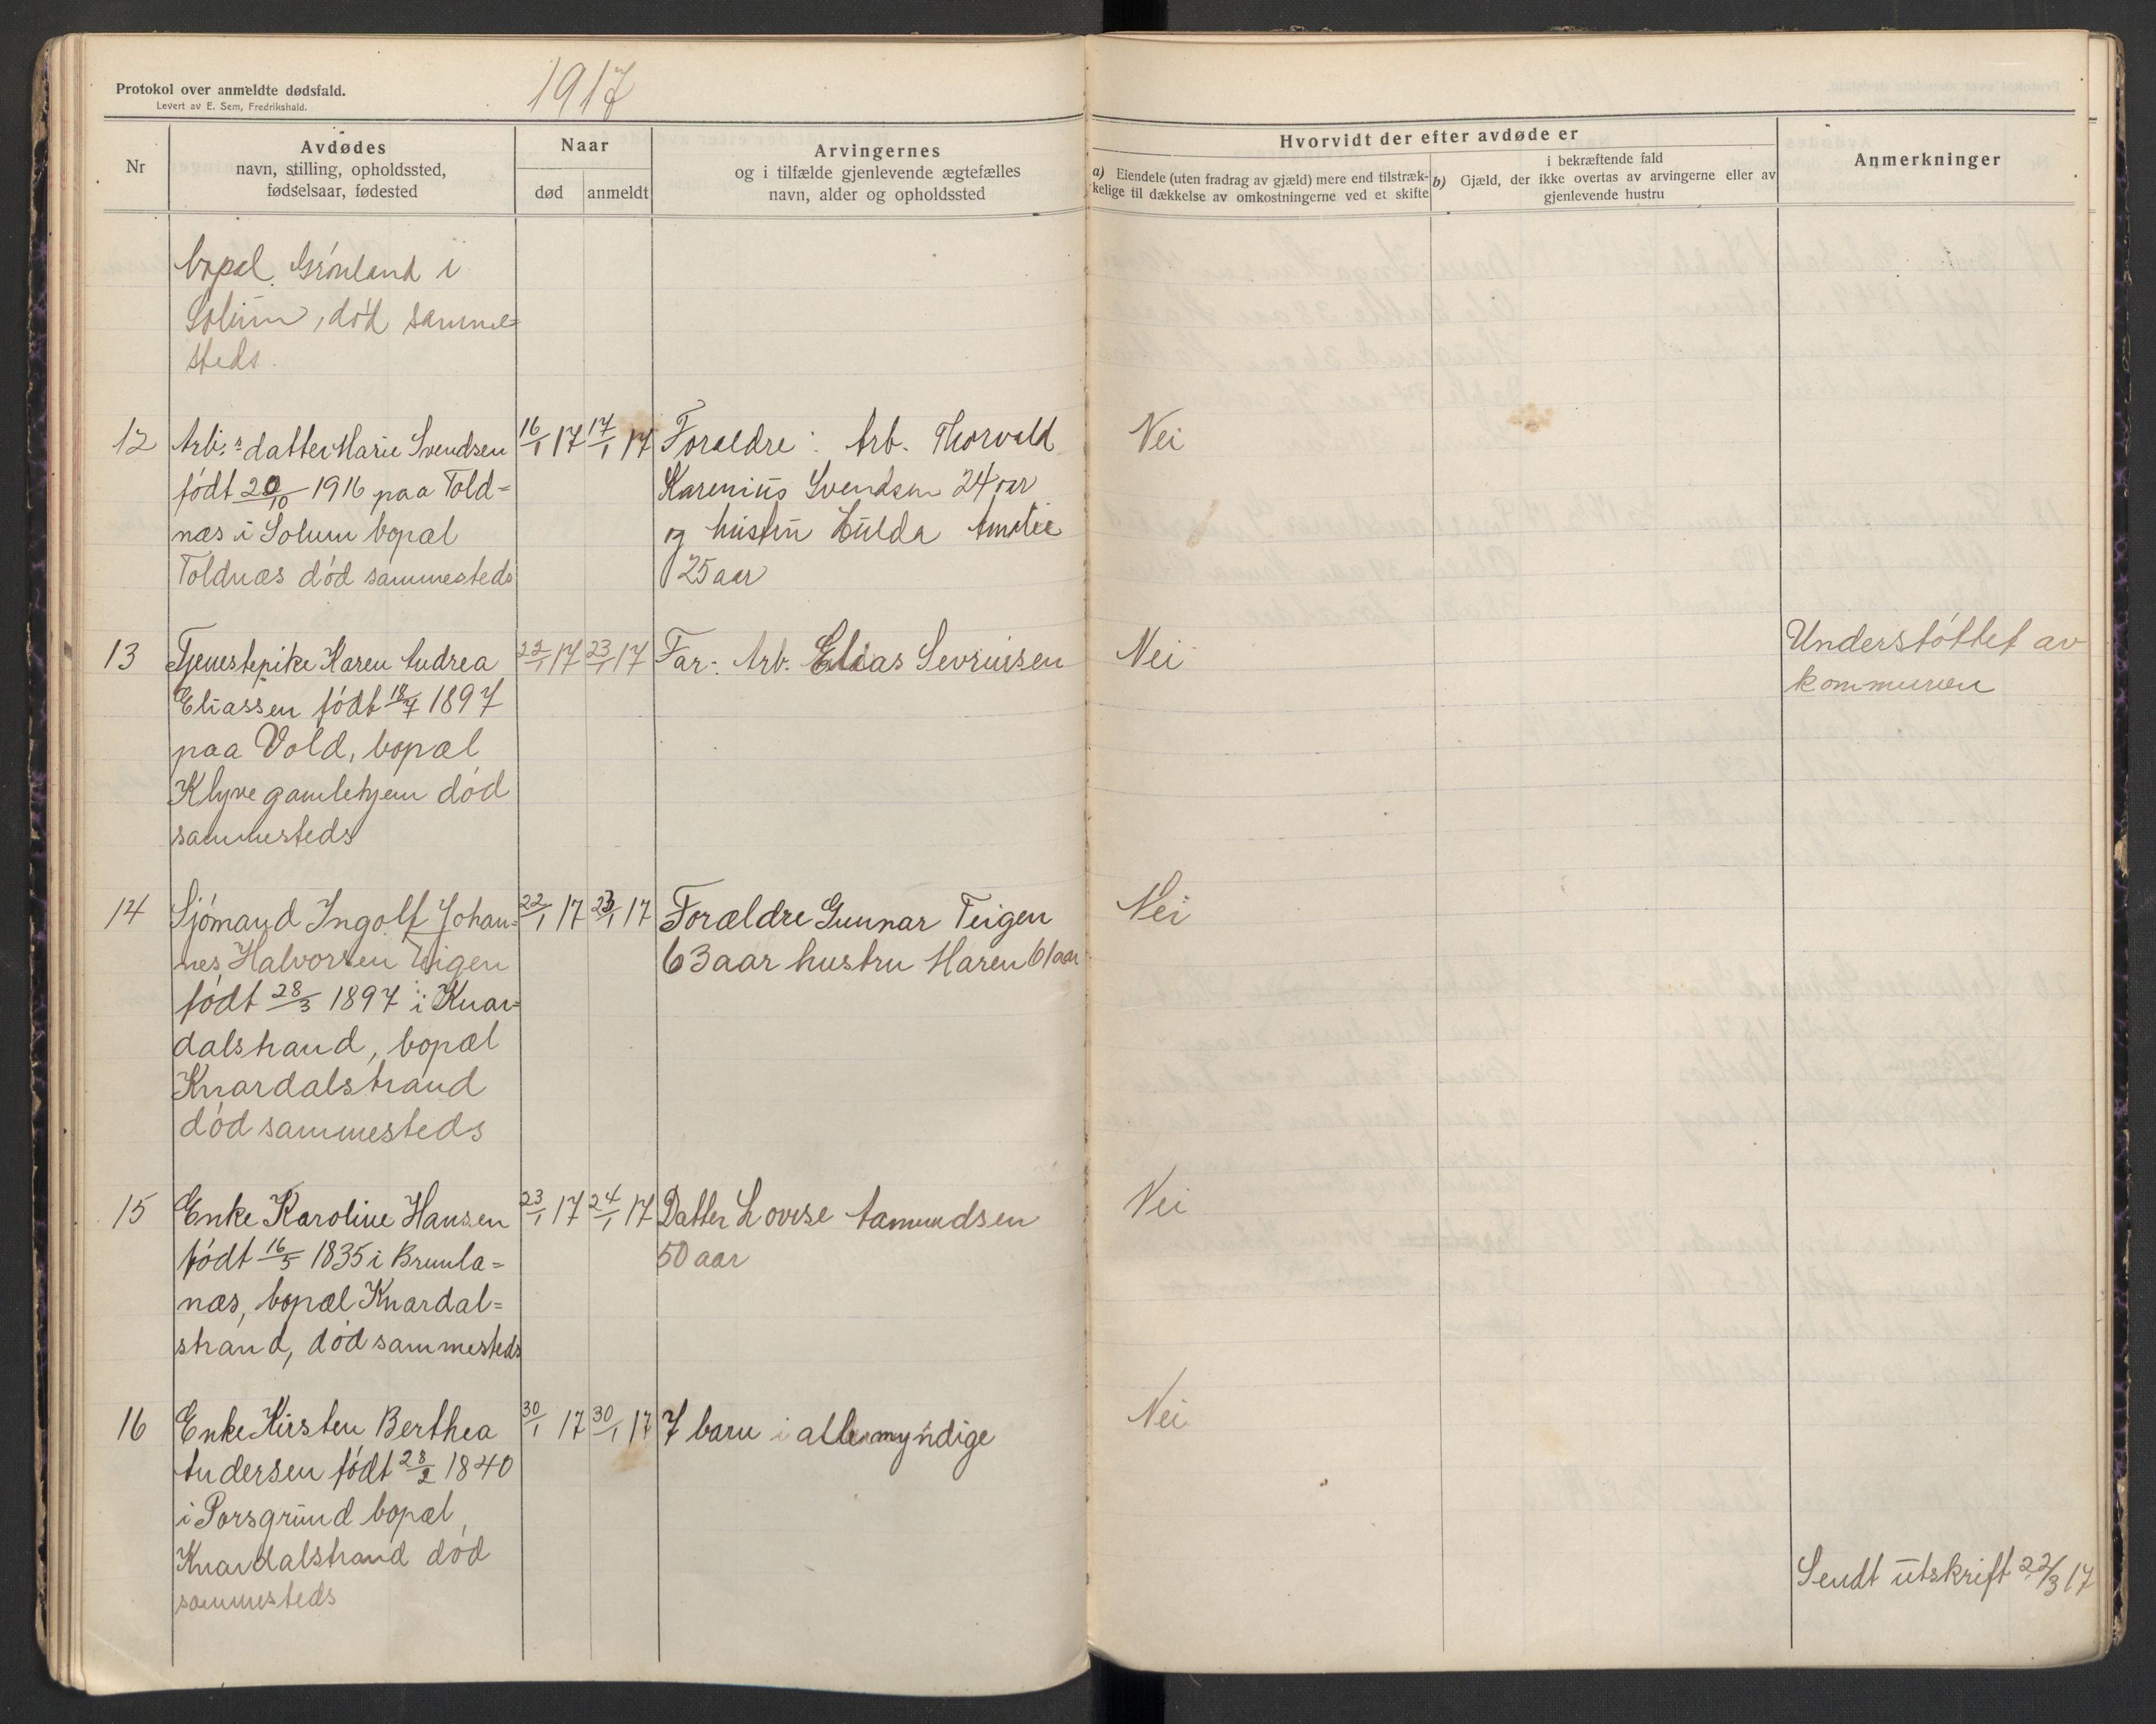 Protokol over anmeldte dødsfald.
Levert av E. Sem, Fredrikshald.
1917
Nr
Avdødes
navn, stilling, opholdssted,
fødselsaar, fødested
Naar
død
anmeldt
Arvingernes
og i tilfælde gjenlevende ægtefælles
navn, alder og opholdssted
Hvorvidt der efter avdøde er
a) Eiendele (uten fradrag av gjæld) mere end tilstræk-
kelige til dækkelse av omkostningerne ved et skifte
i bekræftende fald
b) Gjæld, der ikke overtas av arvingerne eller av
gjenlevende hustru
Anmerkninger
bopæl Grönland i
Solum, död samme=
steds.
12 Arb.s datter Marie Svendsen 16/1 17 17/1 17 Foræeldre: Arb. Thorvald Nei
födt 20/10 1916 paa Told= Karenius Svendsen 24 aar
næs i Solum bopæl og hustru Hulda Amalie
Toldnæs död sammesteds 25 aar
13 Tjenestepike Karen Andrea 22/1 17 23/1 17 Far: Arb. Elias Sevrinsen Nei Understöttet av
Eliassen födt 18/7 1897 kommunen
paa Vold, bopæl
Klyve gamlehjem död
sammesteds
14 Sjömand Ingolf Johan= 22/1 17 23/1 17 Forældre Gunnar Teigen Nei
nes Halvorsen Teigen 63 aar hustru Maren 61 aar
födt 28/3 1897 i Knar=
dalstrand, bopæl
Knardalstrand
död sammesteds
15 Enke Karoline Hansen 23/1 17 24/1 17 Datter Lovise Aamundsen Nei
födt 16/5 1835 i Brunla= 50 aar
næs, bopæl Knardal=
strand, död sammesteds
16 Enke Kirsten Berthea 30/1 17 30/1 17 7 barn i alle myndige Nei
Andersen födt 28/2 1840
i Porsgrund bopæl
Knardalstrand död
sammesteds
Sendt utskrift 22/3 17